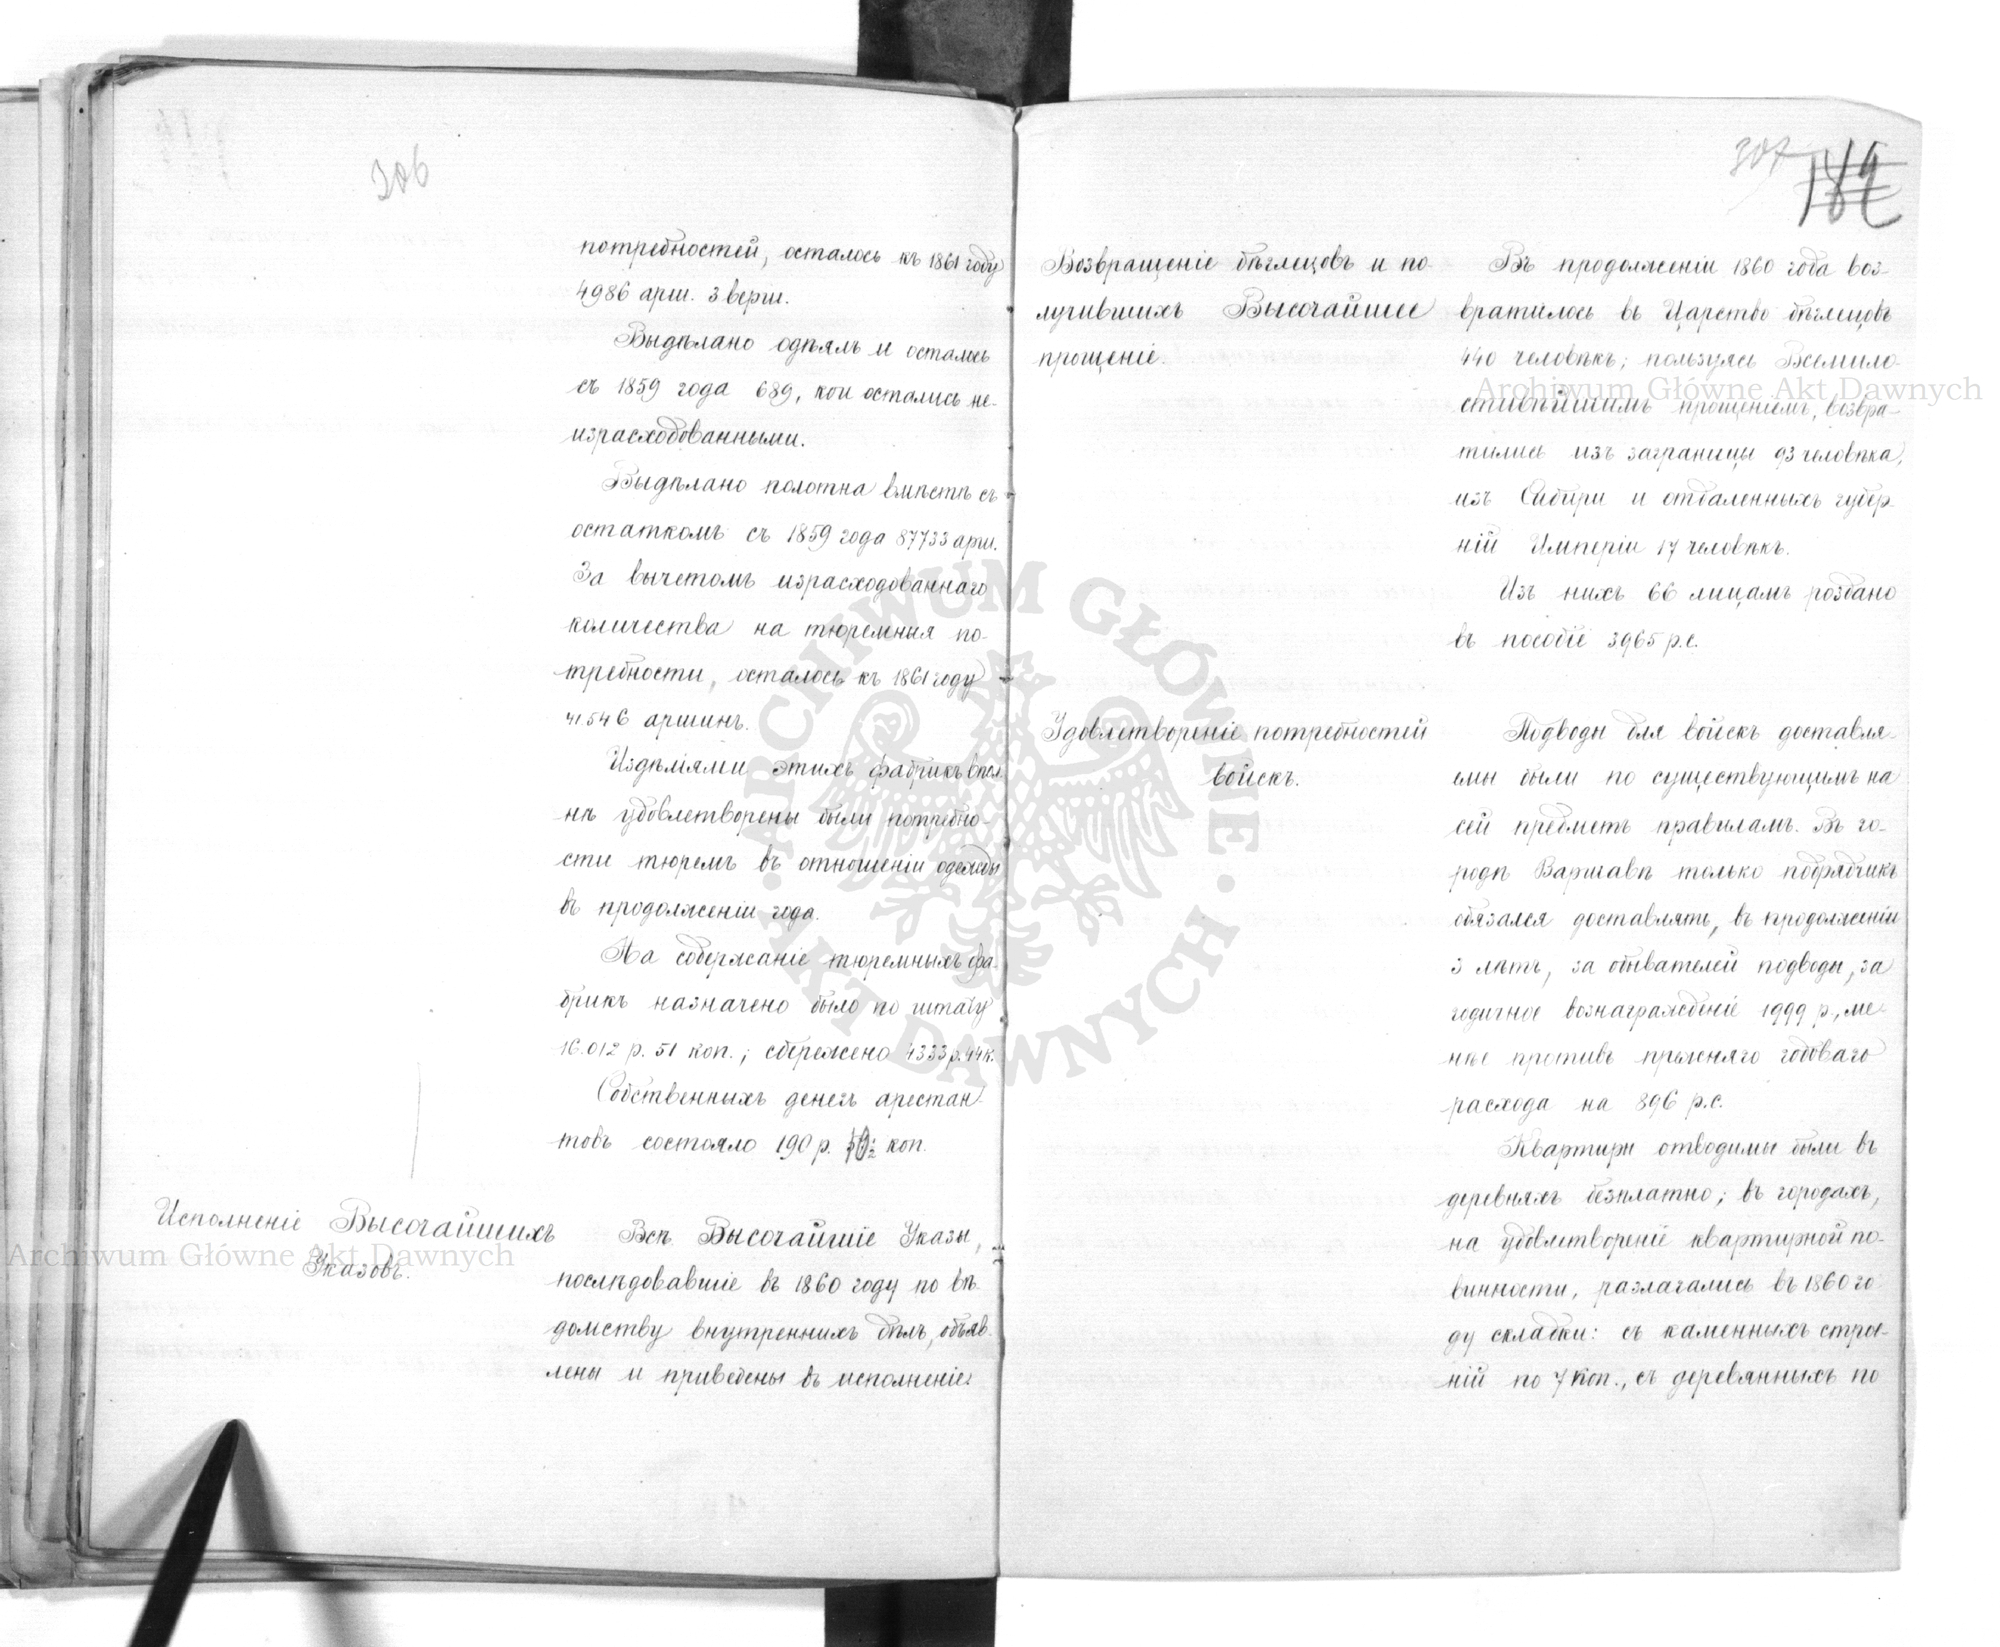 306
потребностей, осталось къ 1861 году
4986 арш. 3 верш.
Выдѣлано одѣялъ и осталось
съ 1859 года 689, кои остались не-
израсходованными.
Выдѣлано полотна вмѣстѣ съ
остаткомъ съ 1859 года 87733 арш.
За вычетомъ израсходованнаго
количества на тюремныя по-
требности, осталось къ 1861 году
41546 аршинъ.
Издѣліями этихъ фабрикъ впол-
нѣ удовлетворены были потребно-
сти тюремъ въ отношеніи одежды
въ продолженіи года.
На содержаніе тюремныхъ фа-
брикъ назначено было по штату
16.012 р. 51 коп.; сбережено 4333 р. 44 к.
Собственныхъ денегъ арестан-
товъ состояло 190 р. коп.
Исполненіе Высочайшихъ
Указовъ.
Всѣ Высочайшіе Указы,
послѣдовавшіе въ 1860 году по вѣ-
домству внутреннихъ дѣлъ, объяв-
лены и приведены въ исполненіе.
307
182
Возвращеніе бѣглецовъ и по-
лучившихъ Высочайшее
прощеніе.
Въ продолженіи 1860 года воз-
вратилось въ Царство бѣглецовъ
440 человѣкъ; пользуясь Всемило-
стивѣйшимъ прощеніемъ, возвра-
тились изъ заграницы 93 человѣка,
изъ Сибири и отдаленныхъ губер-
ній Имперіи 17 человѣкъ.
Изъ нихъ 66 лицамъ роздано
въ пособіе 3965 р.с.
Удовлетвореніе потребностей
войскъ.
Подводы для войскъ доставля-
емы были по существующимъ на
сей предметъ правиламъ. Въ го-
родѣ Варшавѣ только подрядчикъ
обязался доставлять, въ продолженіи
3 лѣтъ, за обывателей подводы, за
годичное вознагражденіе 1999 р., ме-
нѣе противъ прежняго годоваго
расхода на 896 р.с.
Квартиры отводимы были въ
деревняхъ безплатно; въ городахъ,
на удовлетвореніе квартирной по-
винности, разлагались въ 1860 го-
ду складки: съ каменныхъ строе-
ній по 7 коп., съ деревянныхъ по
Archiwum Główne Akt Dawnych
Archiwum Główne Akt Dawnych
ARCHIWUM GŁÓWNE · AKT DAWNYCH ·